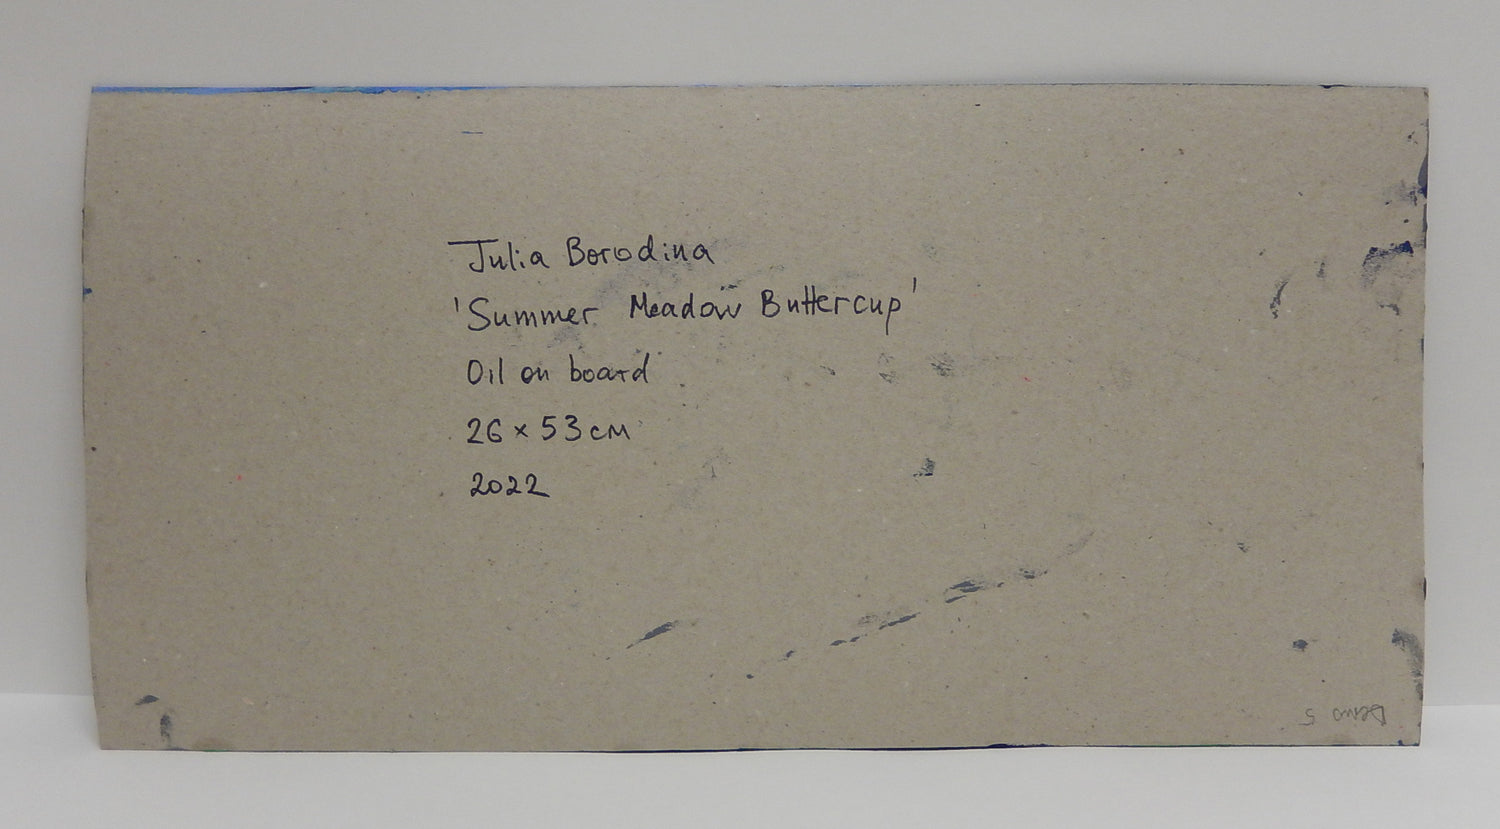 Julia Borodina
'Summer Meadow Buttercup'
Oil on board
26 × 53 cm
2022
Demo 5